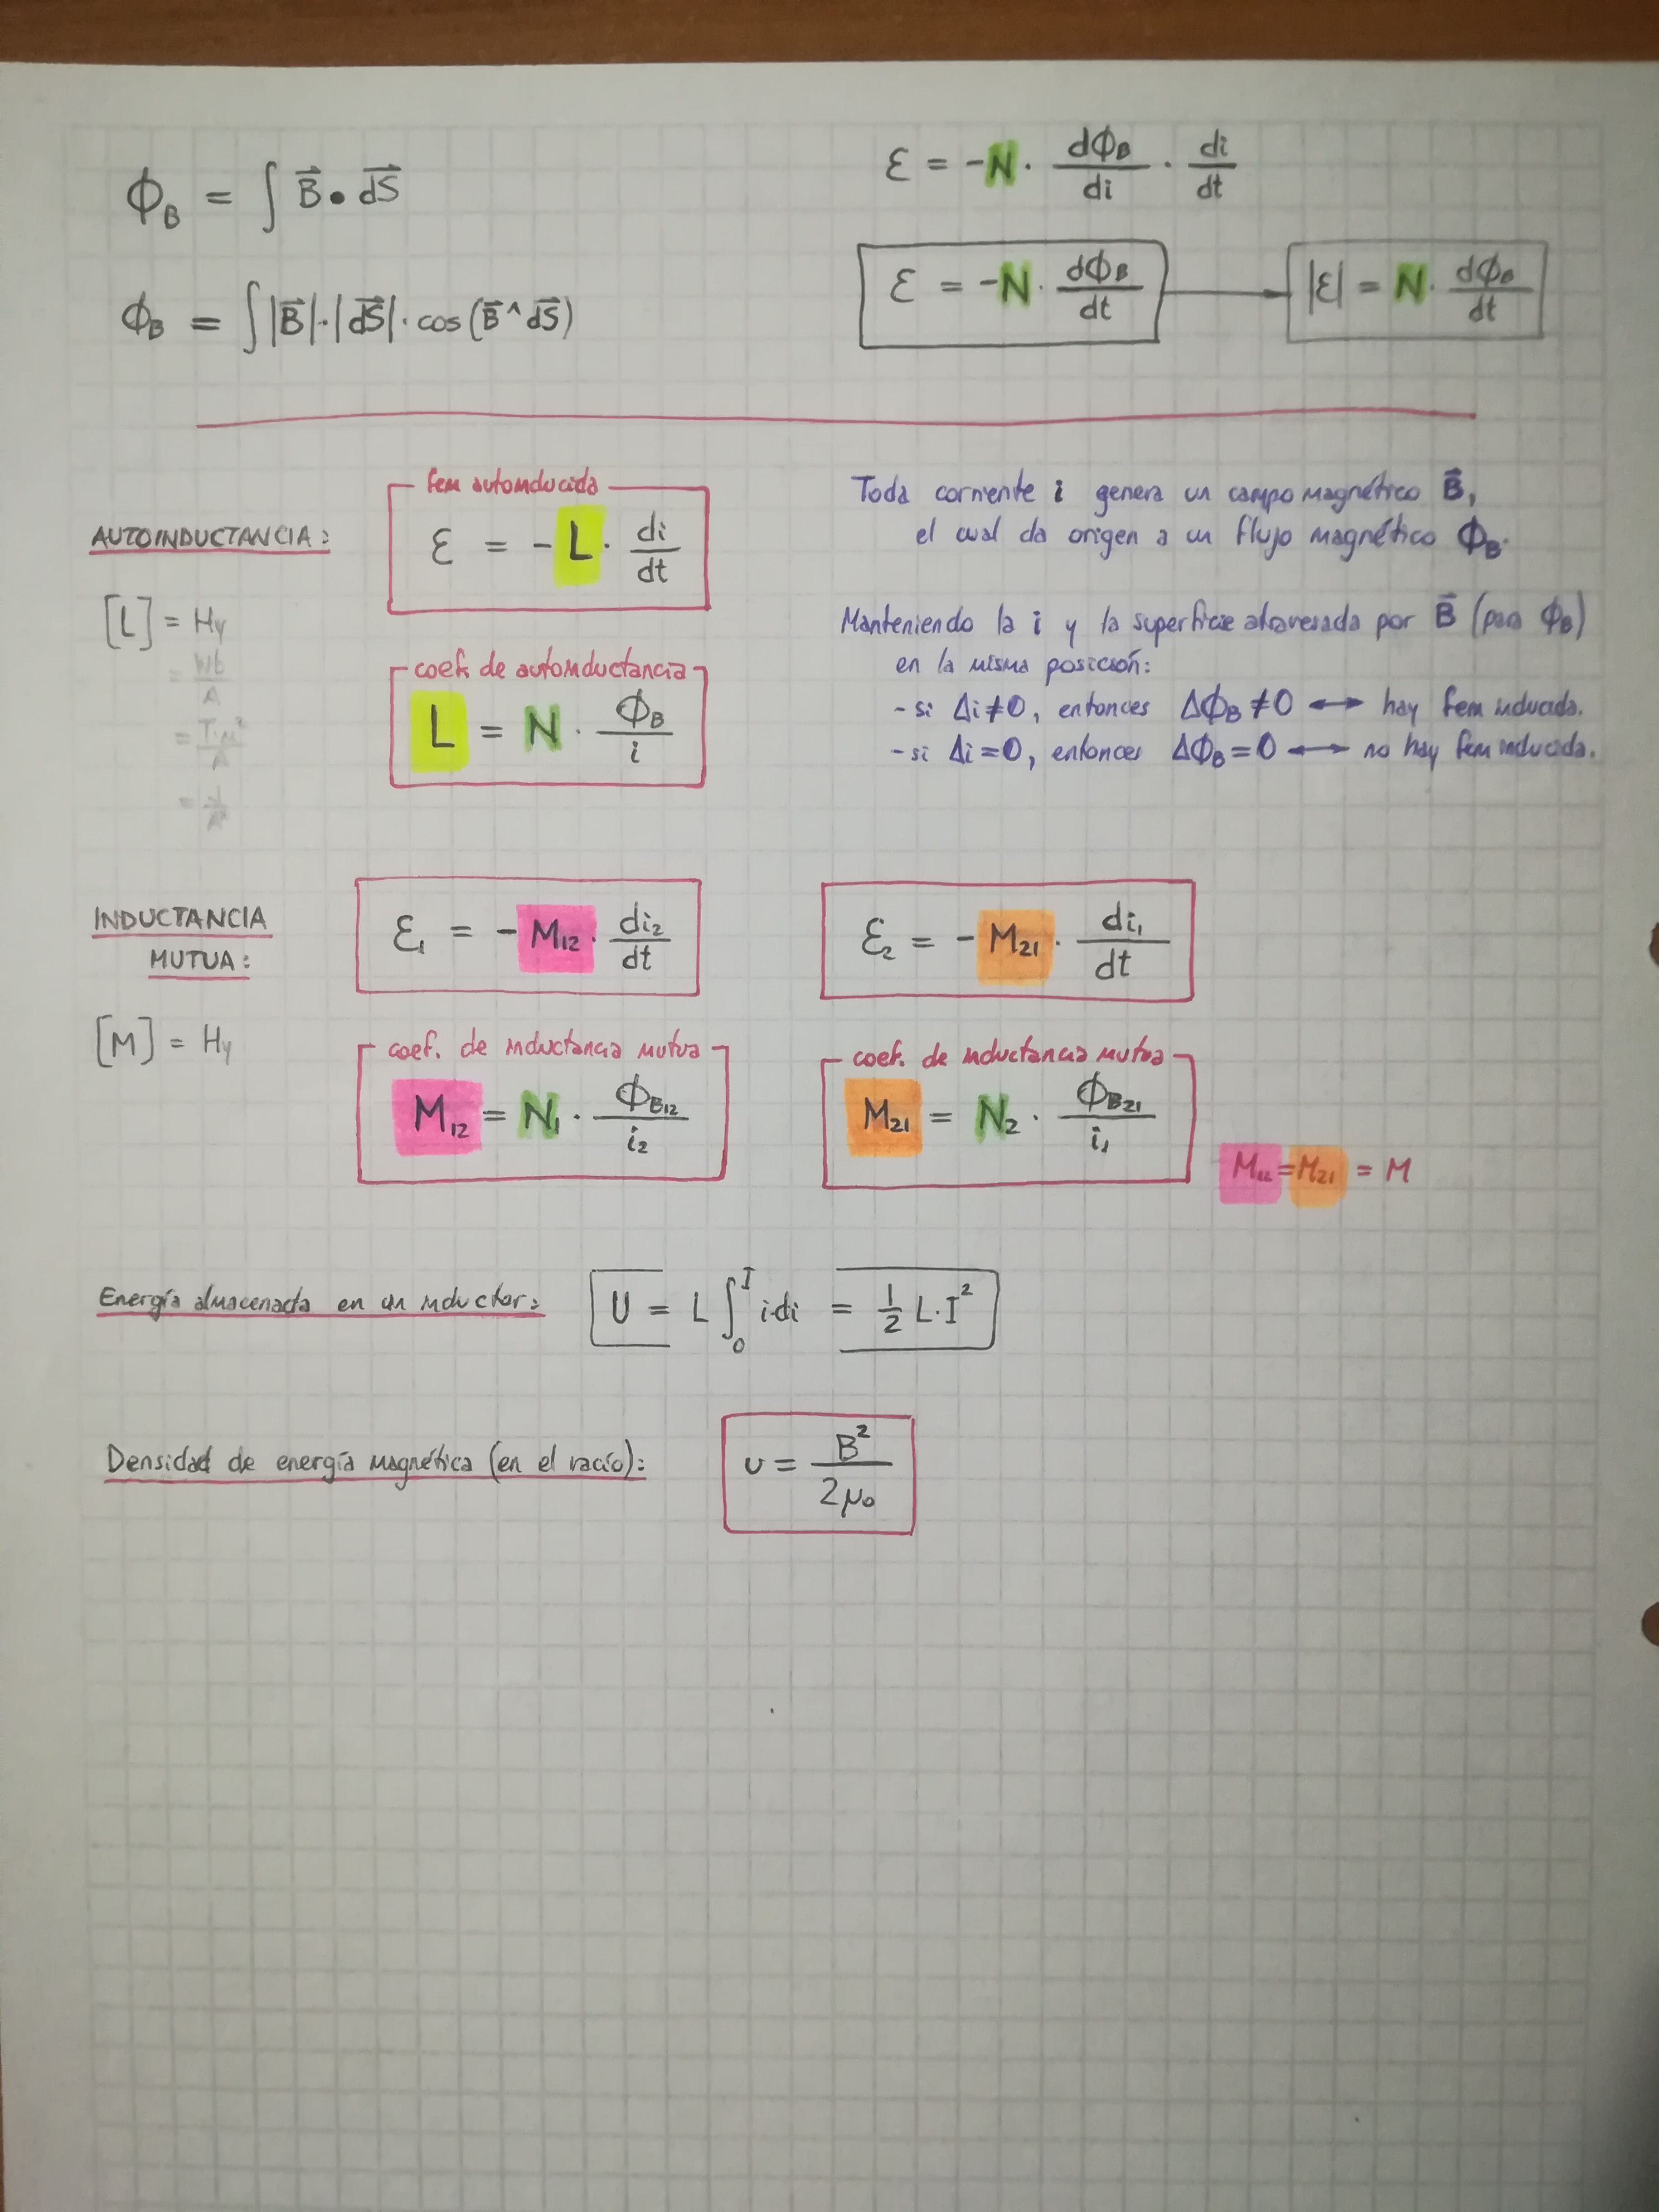 Φ_B = ∫ B⃗ • dS⃗
Φ_B = ∫ |B⃗|·|dS⃗|·cos(B⃗^dS⃗)
ε = -N · dΦ_B/di · di/dt
ε = -N · dΦ_B/dt → |ε| = N · dΦ_B/dt
AUTOINDUCTANCIA:
[L] = Hy
= Wb/A
= T·m²/A
fem autoinducida
ε = -L · di/dt
coef. de autoinductancia
L = N · Φ_B/i
Toda corriente i genera un campo magnético B⃗,
el cual da origen a un flujo magnético Φ_B.
Manteniendo la i y la superficie atravesada por B⃗ (para Φ_B)
en la misma posición:
- si Δi≠0, entonces ΔΦ_B≠0 ↔ hay fem inducida.
- si Δi=0, entonces ΔΦ_B=0 ↔ no hay fem inducida.
INDUCTANCIA
MUTUA:
[M] = Hy
ε₁ = -M₁₂ · di₂/dt
ε₂ = -M₂₁ · di₁/dt
coef. de inductancia mutua
M₁₂ = N₁ · Φ_B₁₂/i₂
coef. de inductancia mutua
M₂₁ = N₂ · Φ_B₂₁/i₁
M₁₂=M₂₁ = M
Energía almacenada en un inductor:
U = L ∫₀ᴵ i·di = 1/2 L·I²
Densidad de energía magnética (en el vacío):
u = B²/2μ₀